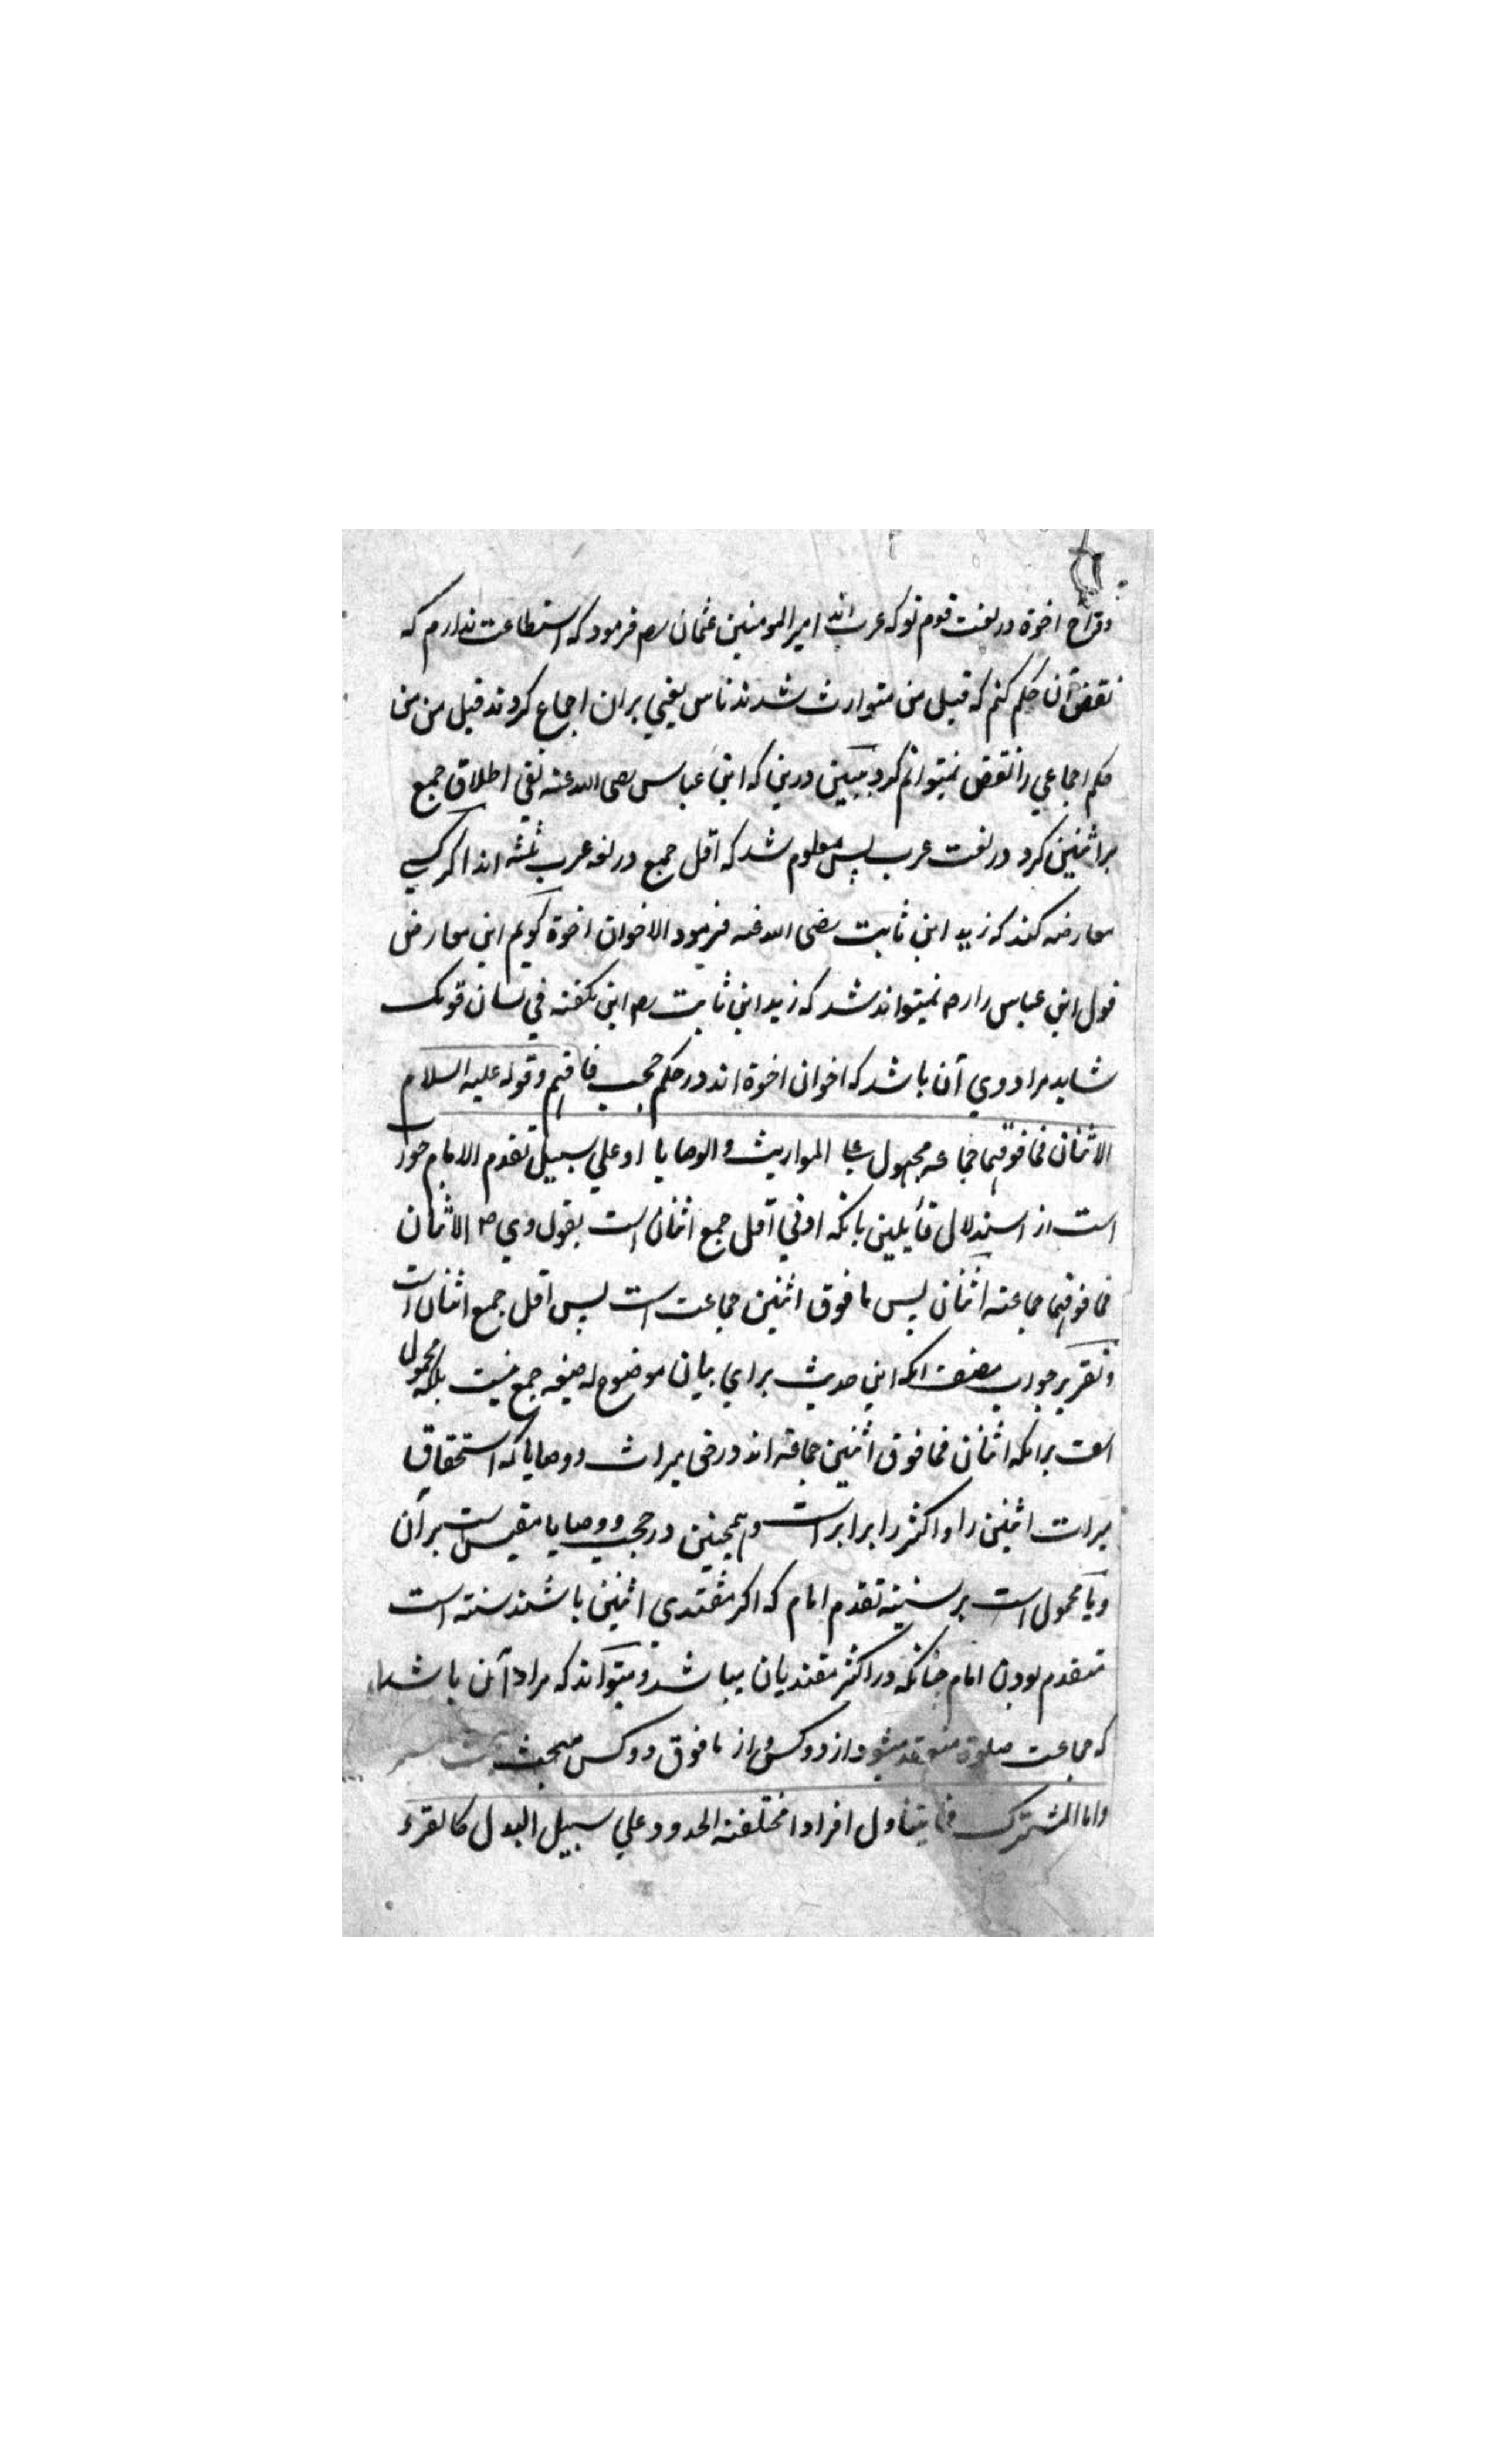 اخوة در لغت قوم تو که عرب اند امیرالمومنین عثمان رض فرمود که استطاعت ندارم که
نقض آن حکم کنم که قبل من متوارث شدند ناس یعني بران اجماع کردند قبل من من
حکم اجماعي را نقض نمیتوانم کرد ببین درین که ابن عباس رضی الله عنه نفي اطلاق جمع
بر اثنین کرد در لغت عرب پس معلوم شد که اقل جمع در لغه عرب ثلثه اند اکر کسے
معارضه کند که زید ابن ثابت رضی الله عنه فرمود الاخوان اخوة کویم این معارض
قول ابن عباس را رض نمیتواند شد که زید ابن ثابت رض این نکفته في لسان قومک
شاید مراد وي آن باشد که اخوان اخوة اند در حکم حجب فافهم وقوله علیه السلام
الاثنان فما فوقهما جماعه محمول علے المواریث والوصایا او علي سبیل تقدم الامام جواب
است از استدلال قائلین بانکه ادني اقل جمع اثنان است بقول وي ص الاثنان
فما فوقهما جماعته اثنان پس ما فوق اثنین جماعت است پس اقل جمع اثنان است
وتقریر جواب مصنف انکه این حدیث براي بیان موضوع له صیغه جمع نیست بلکه محمول
است برانکه اثنان فما فوق اثنین جماعته اند در حق میراث ووصایا که استحقاق
میراث اثنین را واکثر را برابر است وهمچنین در حجب ووصایا مقیس است بر آن
ویا محمول است بر سنیته تقدم امام که اکر مقتدی اثنین باشند سنته است
متقدم بودن امام چنانکه در اکثر مقتدیان میباشد ومیتواند که مراد آن باشد
که جماعت صلوة منعقد میشود از دو کس و از ما فوق دو کس مبحث
واما المشترک فما یتناول افرادا مختلفته الحدود علي سبیل البدل کالقرء